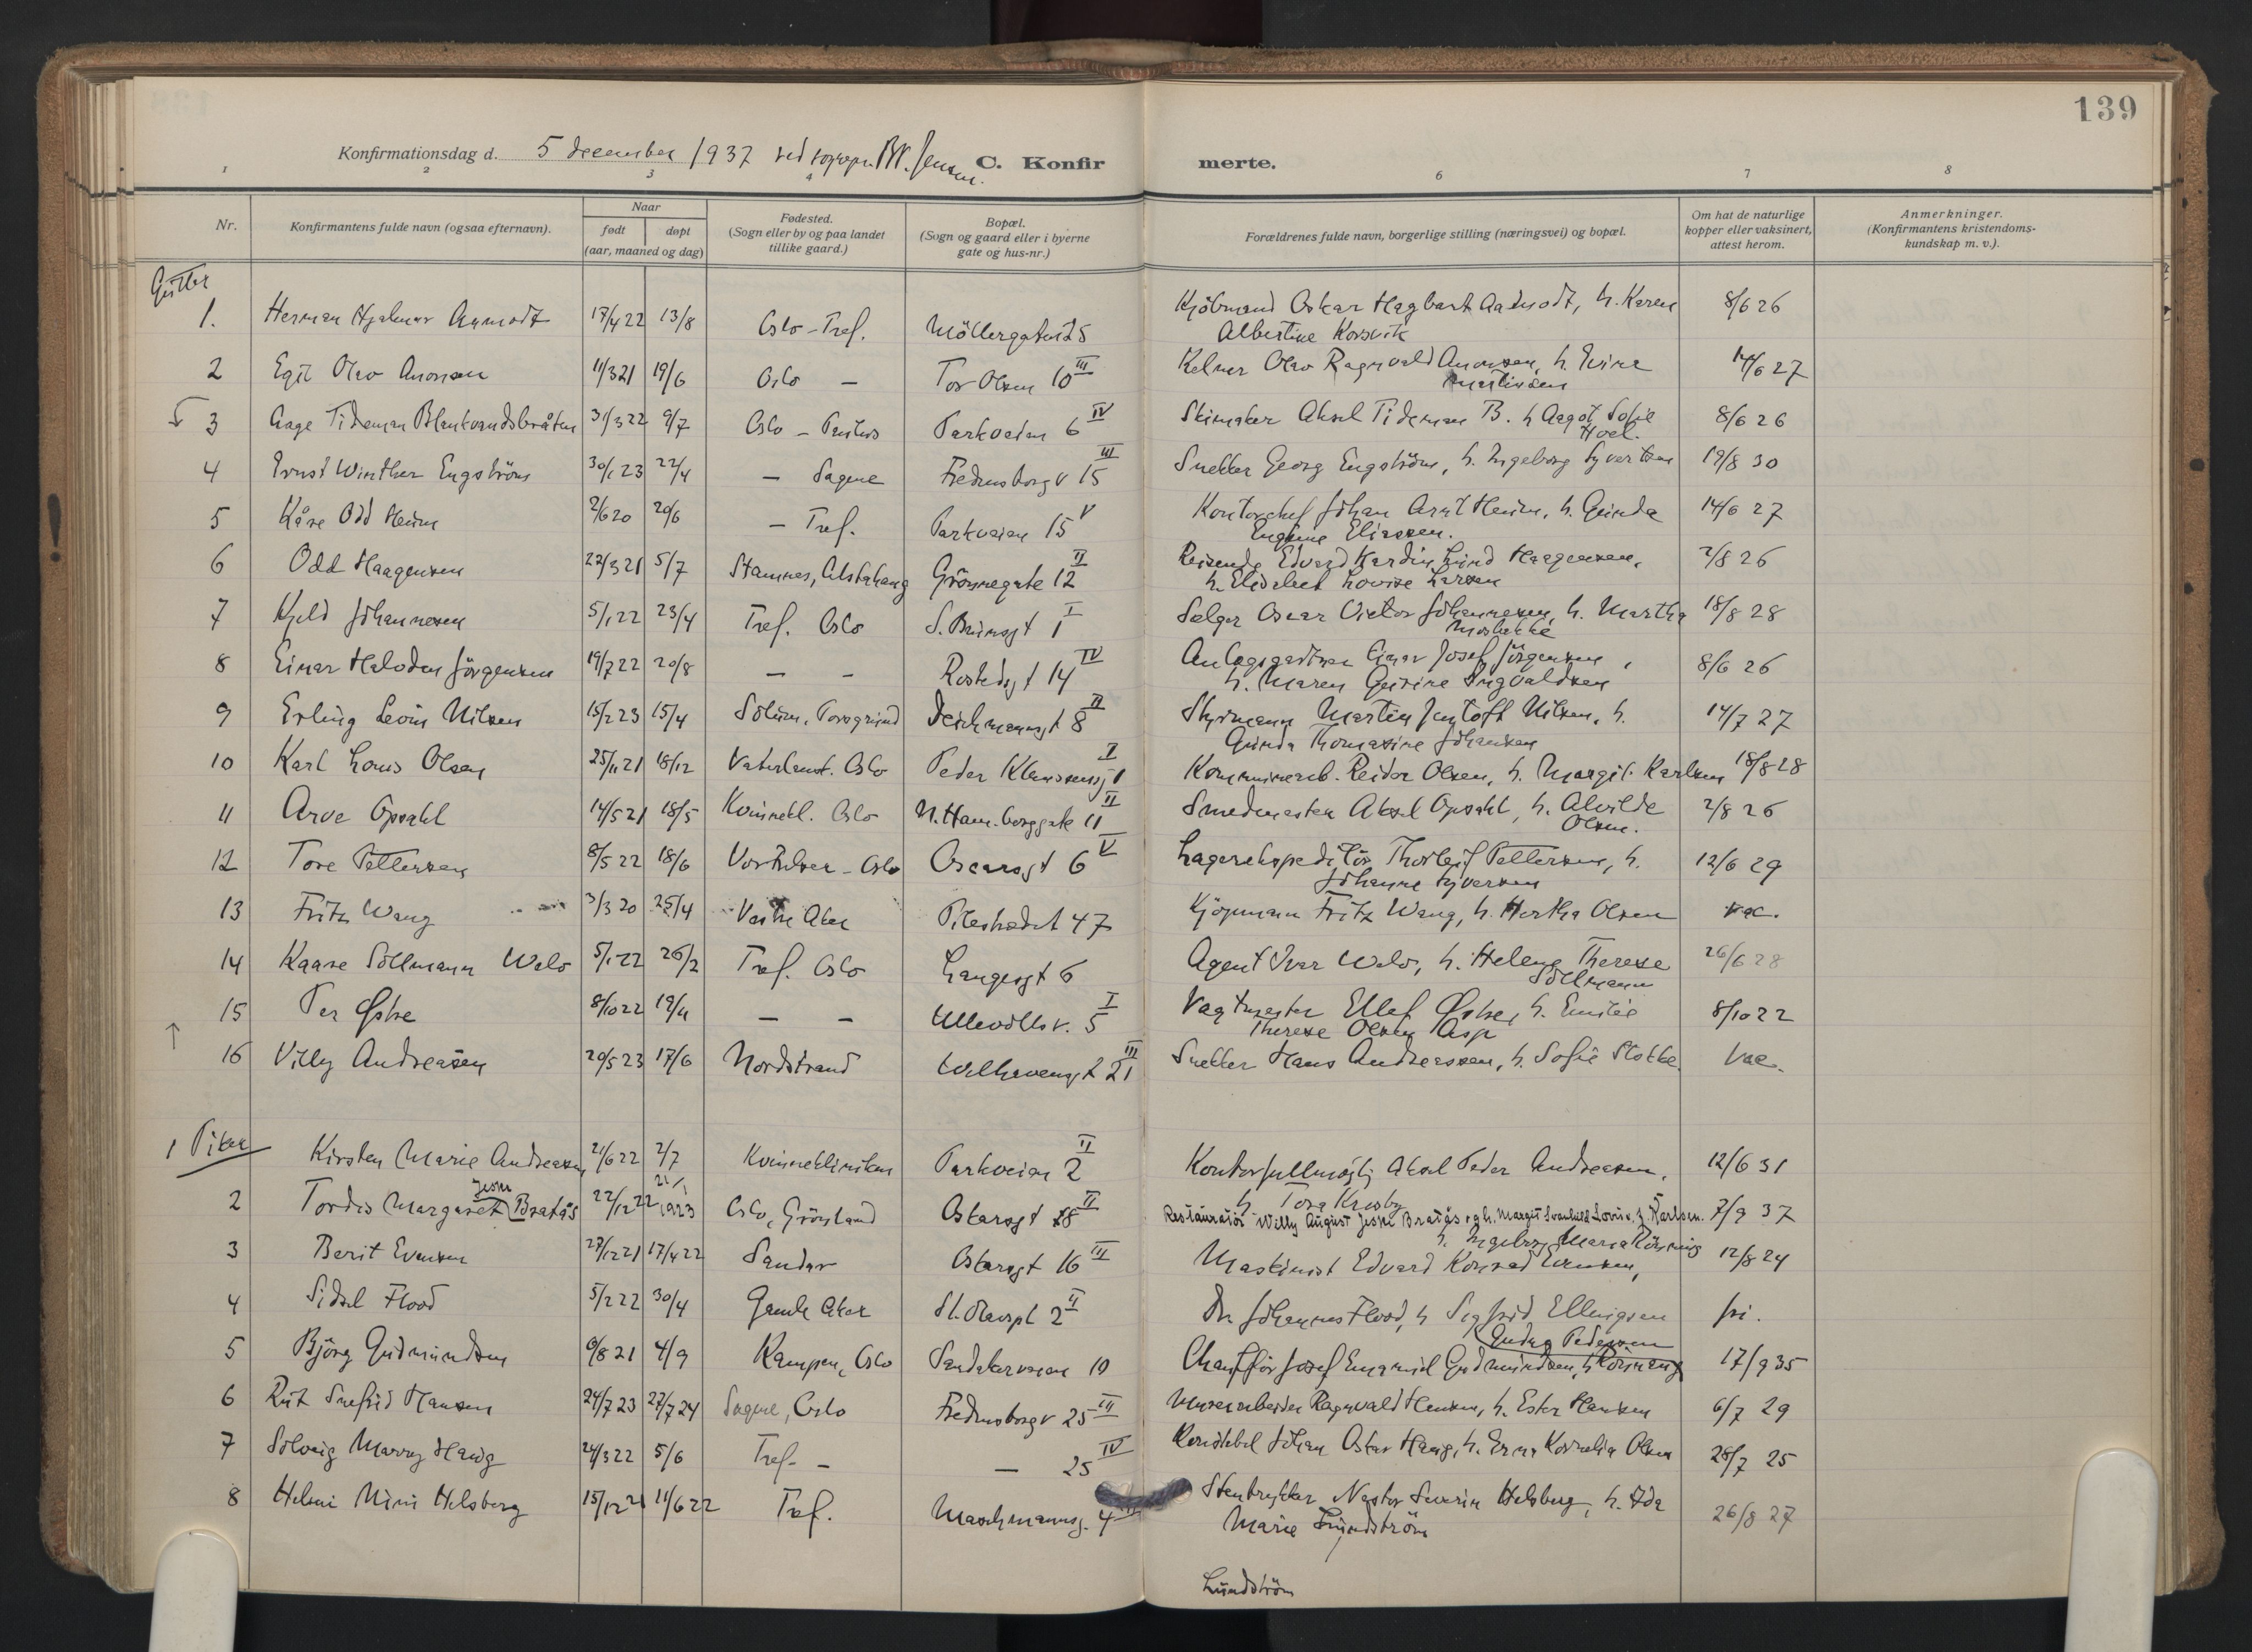 139
Konfirmationsdag d. 5 december 1937 ved sogneprn Jensen. C. Konfirmerte.
1 2 3 4 6 7 8
Nr. Konfirmantens fulde navn (ogsaa efternavn). Naar født døpt (aar, maaned og dag) Fødested. (Sogn eller by og paa landet tillike gaard.) Bopæl. (Sogn og gaard eller i byerne gate og hus-nr.) Forældrenes fulde navn, borgerlige stilling (næringsvei) og bopæl. Om hat de naturlige kopper eller vaksinert, attest herom. Anmerkninger. (Konfirmantens kristendomskundskap m. v.).
Gutter
1. Herman Hjalmar Aamodt 17/4 22 13/8 Oslo - Tref. Möllergaten 25 Kjöbmand Oskar Hagbart Aamodt, h. Karen 8/6 26
Albertine Korsvik
2 Egil Olav Aronsen 11/3 21 19/6 Oslo — Tor Olsen 10 III Kelner Olav Ragnvald Aronsen, h. 14/6 27
Martinsen
3 Aage Tideman Blankvandsbråten 31/3 22 9/7 Oslo - Paulus Parkveien 6 IV Skimaker Aksel Tideman B. h Aagot Sofie 8/6 26
Hoel.
4 Ernst Winther Engström 30/1 23 22/4 — Sagene Fredensborgv 15 III Snekker Georg Engström, h. Ingeborg Syvertsen 19/8 30
5 Kåre Odd Heim 2/6 20 20/6 — Tref. Parkveien 15 V Kontorchef Johan Heim, h. Gunda 14/6 27
Eugenie Eliassen.
6 Odd Haagensen 22/3 21 5/7 Stamnes, Alstahaug Grönnegate 12 II Reisende Edvard Lund Haagensen, 2/8 26
h. Elisabet Lovise Larsen
7 Kjeld Johannesen 5/1 22 23/4 Tref. Oslo S. Brunsgt 1 I Selger Oscar Victor Johannesen, h. Martha 18/8 28
Mosbekke
8 Einar Halvdan Jörgensen 19/7 22 20/8 — - Rostedsgt 14 IV Anlegsgartner Einar Josef Jörgensen, 8/6 26
h. Maren Gurine Ingvaldsen
9 Erling Leon Nilsen 15/2 23 15/4 Solum, Porsgrund Deichmansgt 8 II Styrmann Martin Nilsen, h. 14/7 27
Gunda Thomasine Johansen
10 Karl Louis Olsen 25/11 21 18/12 Vaterlandt. Oslo Peder Klaussensg 1 I Reidar Olsen, h. Margit Karlsen 18/8 28
11 Arve Opsahl 14/5 21 18/5 Kvinnekl. Oslo N. Ham.borggate 11 II Smedmester Aksel Opsahl, h. Alvilde 2/8 26
Olsen.
12 Tore Pettersen 8/5 22 18/6 Vor Frelser - Oslo Oscarsgt 6 V Lagerekspeditör Thorleif Pettersen, h. 12/6 29
Johanne Syversen
13 Fritz Wang 3/3 20 25/4 Vestre Aker Pilestredet 47 Kjöpmann Fritz Wang, h. Hertha Olsen vac.
14 Kaare Söllmann Welo 5/1 22 26/2 Tref. Oslo Langesgt 6 Agent Ivar Welo, h. Helene Therese 26/6 28
Söllmann
15 Per Østre 8/10 22 19/11 — — Ullevollsv. 5 I Vagtmester Ellef Østre, h. Emilie 8/10 22
Therese Olsen Asp
16 Villy Andreasen 20/5 23 17/6 Nordstrand Welhavensgt 21 III Snekker Hans Andreassen, h. Sofie Stokke. Vac.
Piker
1 Kirsten Marie Andreasen 21/6 22 2/7 Kvinneklinikken Parkveien 2 II Kontorfullmegtig Aksel Peder Andreasen, 12/6 31
h Tora Krosby
2 Tordis Margaret Jesni Bratås 22/12 22 21/1 1923 Oslo, Grönland Oskarsgt 18 II Restauratör Willy August Jesni Bratås og h. Margit Svanhild Lovise f. Karlsen. 7/9 37
3 Berit Evensen 27/12 21 17/4 22 Sandar Oskarsgt 16 III Maskinist Edvard Konrad Evensen, h. Ingeborg Maria Rönning 12/8 24
4 Sidsel Flood 5/2 22 30/4 Gamle Aker St. Olavspl 2 II Dr Johannes Flood, h Sigfrid Ellingsen fri.
5 Björg Gudmundsen 9/8 21 4/9 Kampen, Oslo Sandakerveien 10 Chafför Josef Emanuel Gudmundsen, h Pedersen 17/9 35
6 Rut Snefrid Hansen 24/7 23 27/7 24 Sagene, Oslo Fredensborgv 25 III Murerarbeider Ragnvald Hansen, h. Ester Hansen 6/7 29
7 Solveig Marry Haug 24/3 22 5/6 Tref. - — 25 IV Konstabel Johan Oskar Haug, h. Erna Kornelia Olsen 28/7 25
8 Helmi Mimi Helsberg 15/12 21 11/6 22 Tref. Maschmannsg. 4 III Stentrykker Nestor Severin Helsberg, h. Ida 26/8 27
Marie Lundström
Lundström